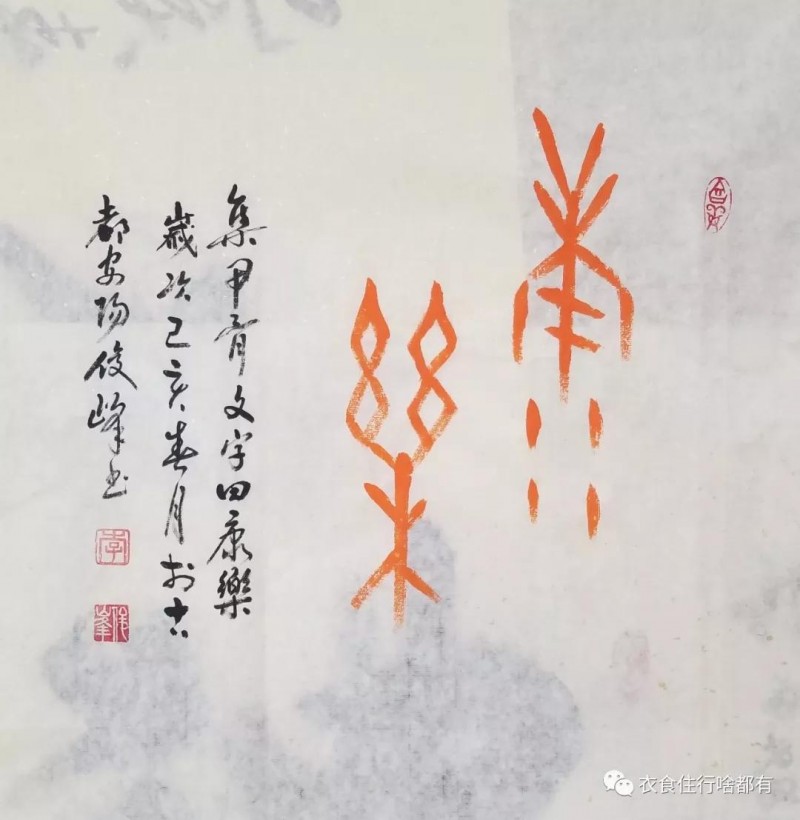 康樂
集甲骨文字曰康樂
歲次己亥春月於古
都安陽俊峰书
李
俊峯
衣食住行啥都有